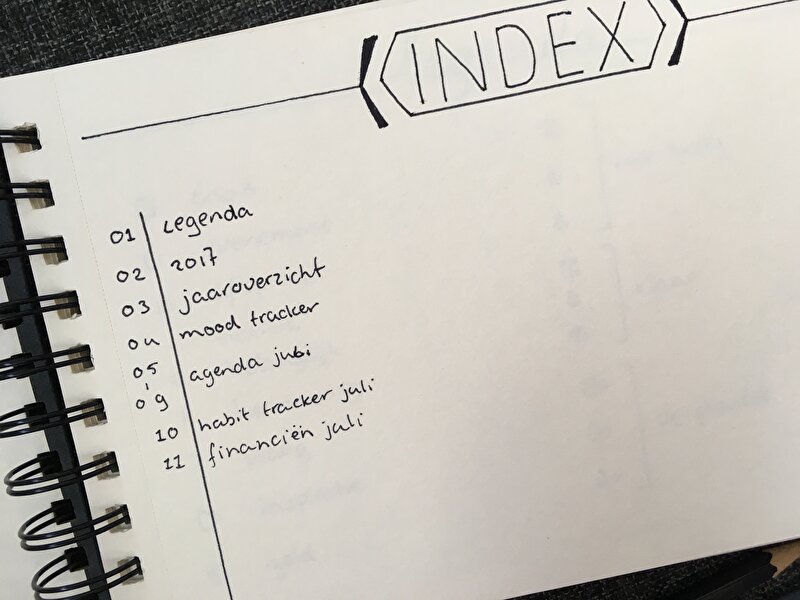 INDEX
01 legenda
02 2017
03 jaaroverzicht
04 mood tracker
05 - 09 agenda juli
10 habit tracker juli
11 financiën juli